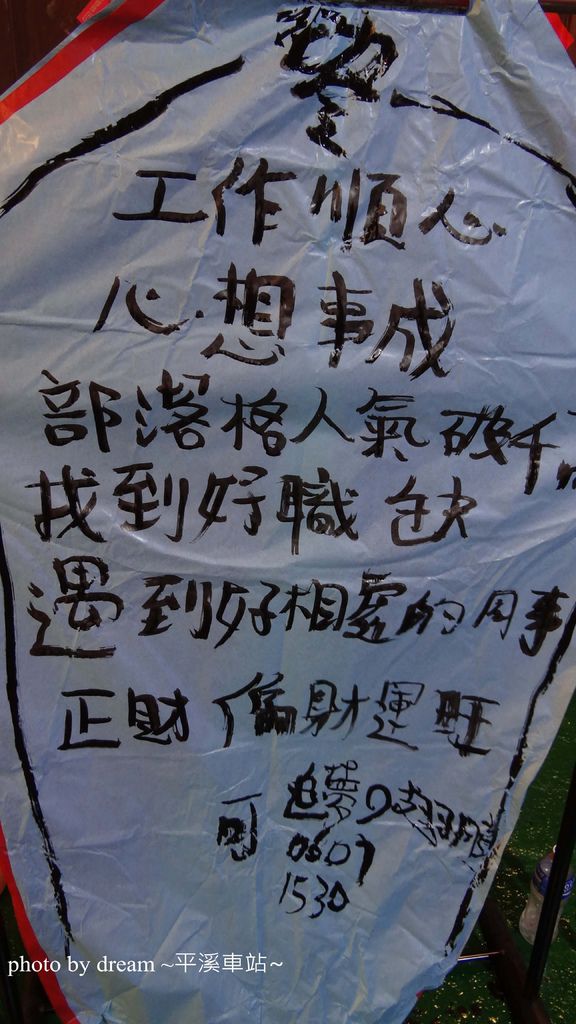 工作順心
心想事成
部落格人氣破千
找到好職缺
遇到好相處的同事
正財偏財運旺
可 追夢の翅膀
0607
1530
photo by dream ~平溪車站~